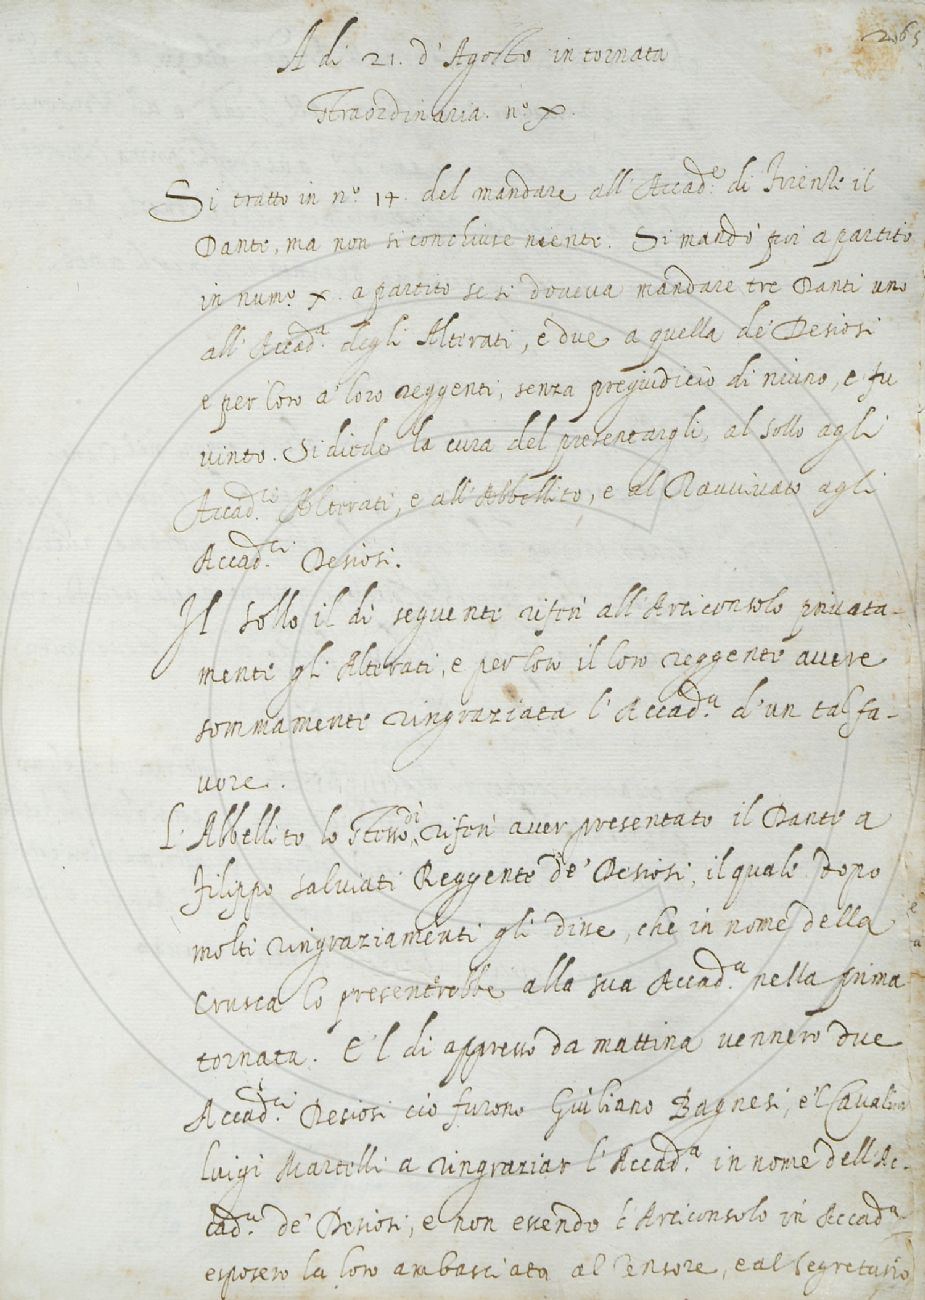 265
A di 21. d'Agosto in tornata
straordinaria. n.º X.
Si trattò in n.º 14. del mandare all'Accad.ª di Firenze il
Dante, ma non si conchiuse niente. Si mandò poi a partito
in num.º X. a partito se si doveva mandare tre Danti uno
all'Accad.ª degli Alterati, e due a quella de' Desiosi
e per loro a' loro reggenti, senza pregiudicio di niuno, e fu
vinto. Si diede la cura del presentargli, al Sollo agli
Accad.ci Alterati, e all'Abbellito, e al Ravvivato agli
Accad.ci Desiosi.
Il Sollo il dì seguente riferì all'Arciconsolo privata-
mente gli Alterati, e per loro il loro reggente avere
sommamente ringraziata l'Accad.ª d'un tal fa-
vore.
L'Abbellito lo stesso dì riferì aver presentato il Dante a
Filippo Salviati Reggente de' Desiosi, il quale dopo
molti ringraziamenti gli disse, che in nome della
Crusca lo presenterebbe alla sua Accad.ª nella prima
tornata. E 'l dì appresso da mattina vennero due
Accad.ci Desiosi ciò furono Giuliano Bagnesi, e 'l Cavalier
Luigi Martelli a ringraziar l'Accad.ª in nome dell'Ac-
cad.ª de' Desiosi, e non essendo l'Arciconsolo in Accad.ª
esposero la loro ambasciata al Censore, e al Segretario